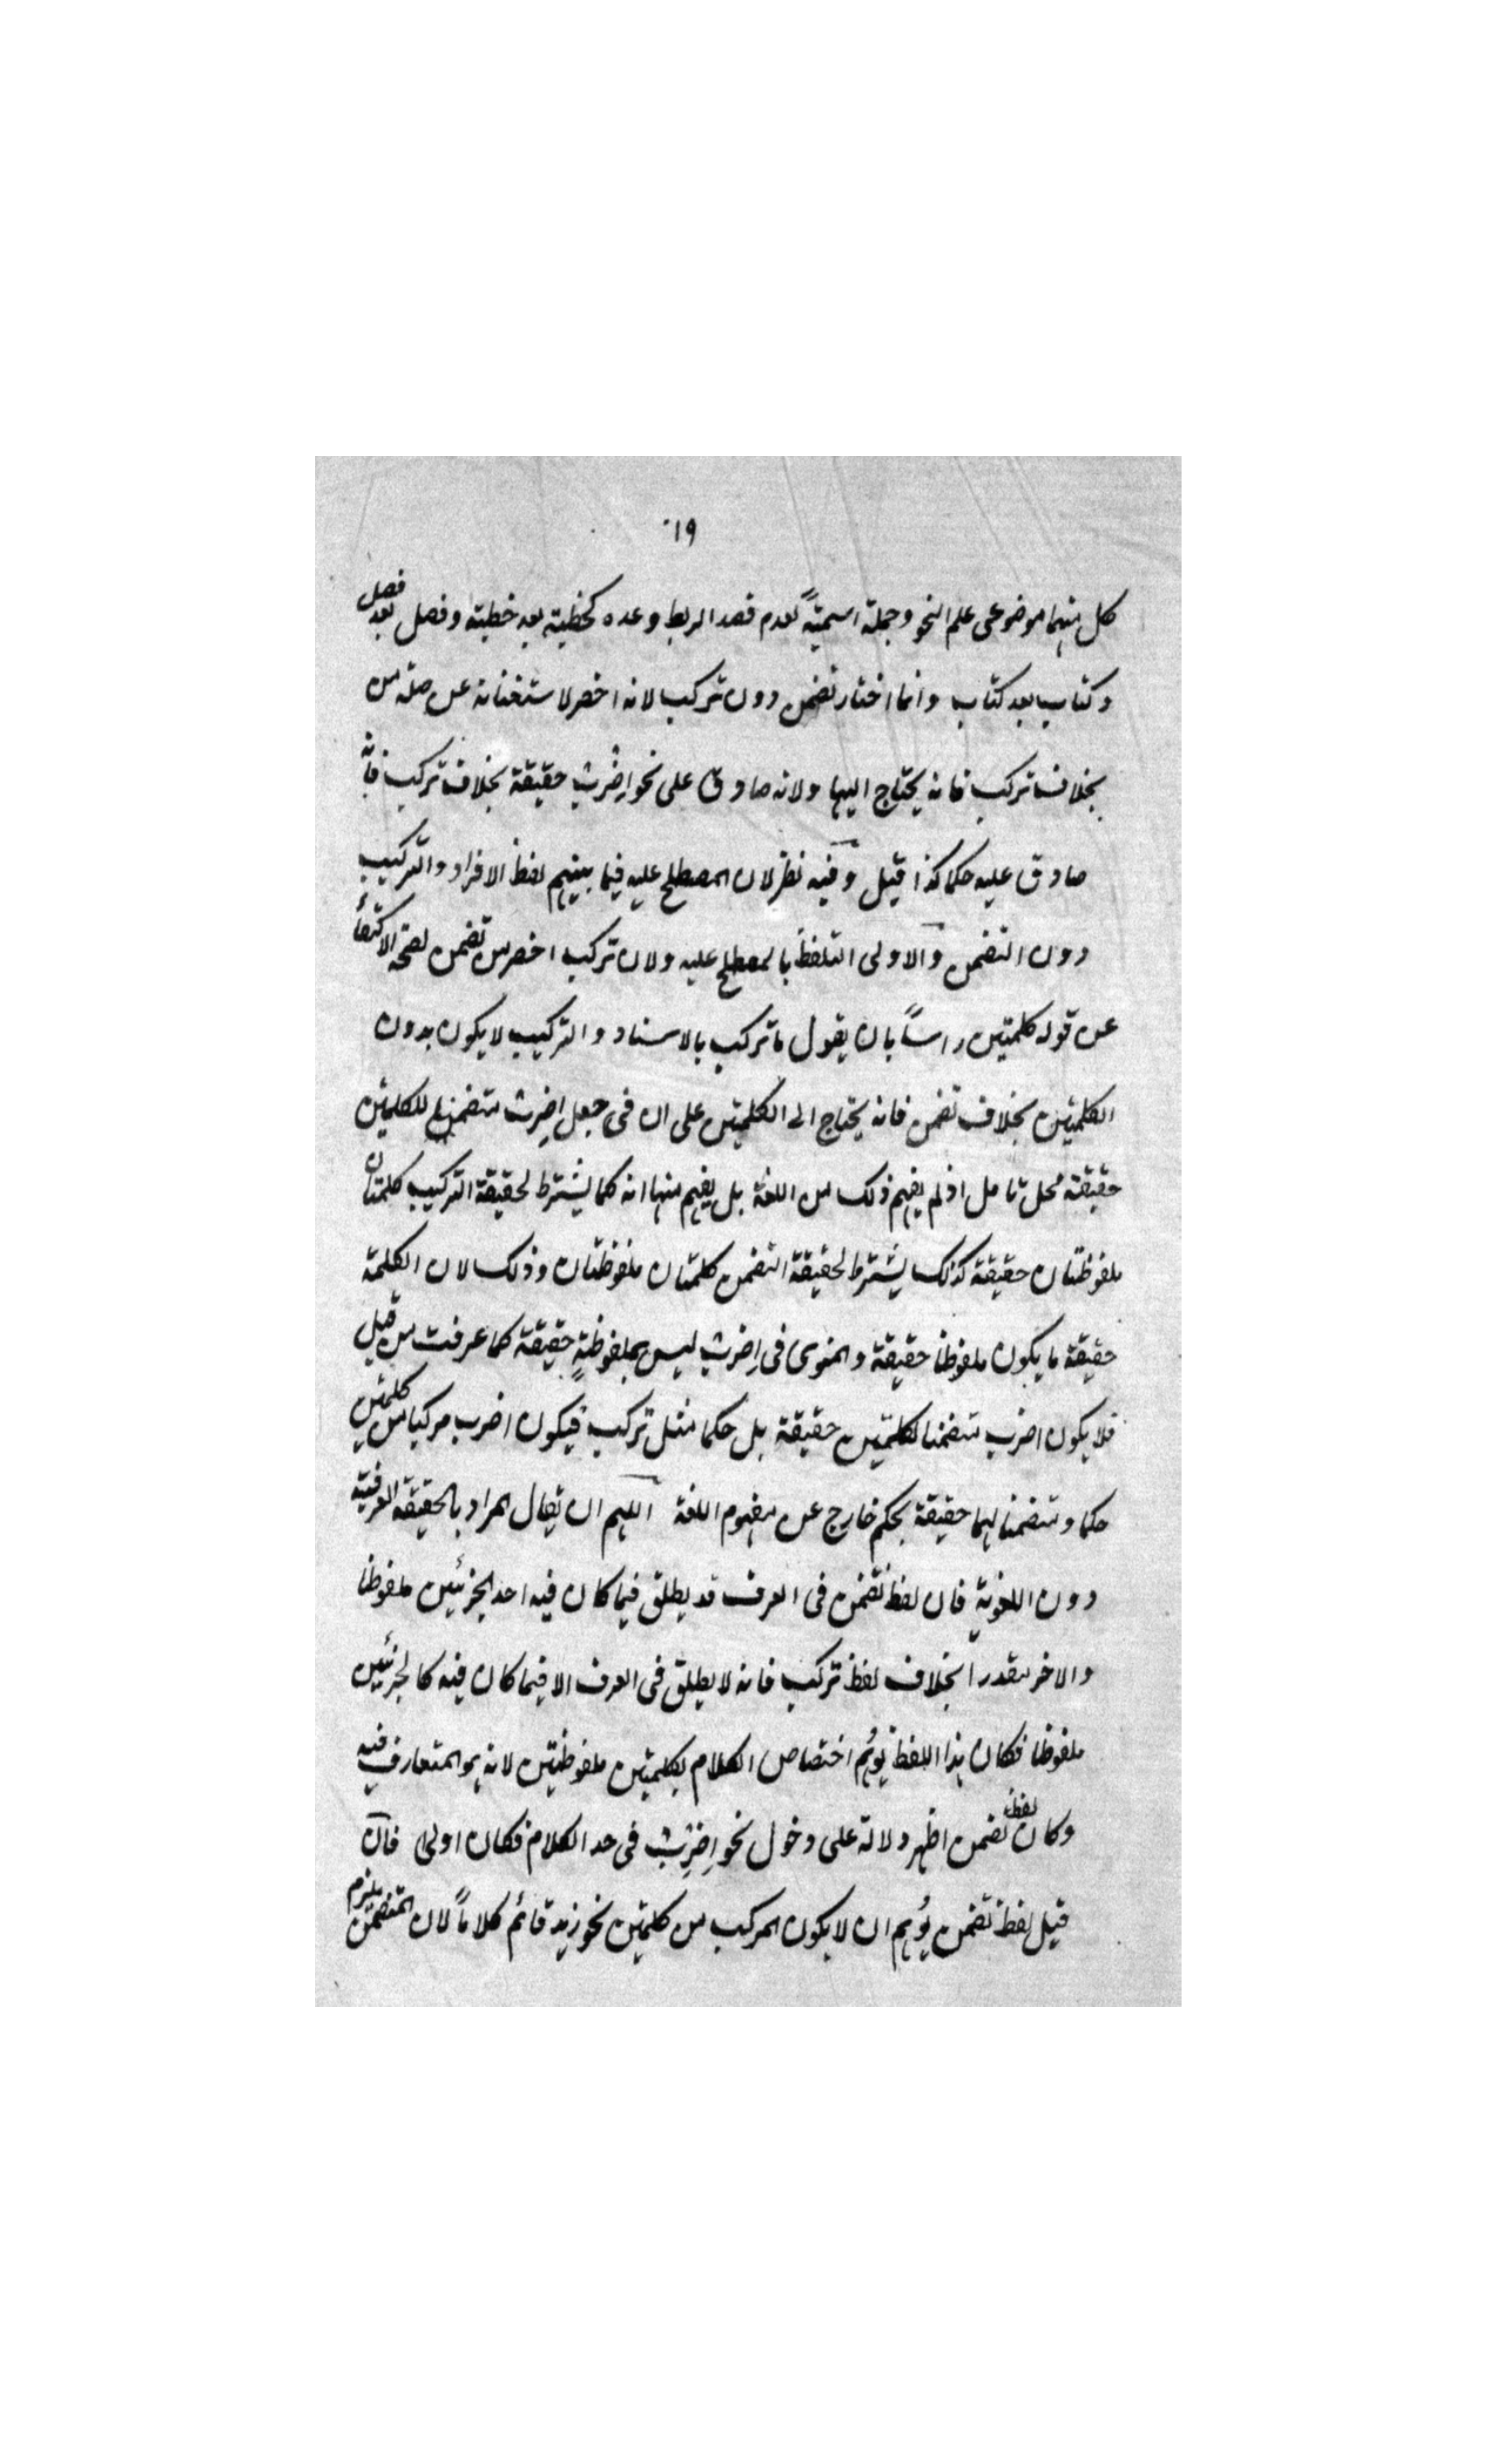 ١٩
كل منهما موضوعى علم النحو وجملة اسمية لعدم قصد الربط وعده كخطبة بعد خطبة وفصل بعد فصل
وكتاب بعد كتاب وانما اختار تضمن دون تركب لانه اخصر لاستغنائه عن صلة من
بخلاف تركب فانه يحتاج اليها ولانه صادق على نحو اِضْرِبْ حقيقة بخلاف تركب فانّه
صادق عليه حكما كذا قيل وفيه نظر لان المصطلح عليه فيما بينهم لفظ الافراد والتركيب
دون التضمن والاولى التلفظ بالمصطلح عليه ولان تركب اخصر من تضمن لصحة الاكتفاء
عن قوله كلمتين راساً بان يقول ما تركب بالاسناد والتركيب لا يكون بدون
الكلمتين بخلاف تضمن فانه يحتاج الى الكلمتين على ان فى جعل اِضرِبْ متضمنا للكلمتين
حقيقة محل تامل اذ لم يفهم ذلك من اللغة بل يفهم منها انه كما يشترط لحقيقة التركيب كلمتان
ملفوظتان حقيقة كذلك يشترط لحقيقة التضمن كلمتان ملفوظتان وذلك لان الكلمة
حقيقة ما يكون ملفوظا حقيقة والمنوى فى اِضرب ليس بملفوظةٍ حقيقة كما عرفت من قبل
فلا يكون اضرب متضمنا لكلمتين حقيقة بل حكما مثل تركب فيكون اضرب مركبا من كلمتين
حكما ومتضمنا لهما حقيقة بحكم خارج عن مفهوم اللغة اللهم ان يقال المراد بالحقيقة العرفية
دون اللغوية فان لفظ تضمن فى العرف قد يطلق فيما كان فيه احد الجزئين ملفوظا
والاخر مقدرا بخلاف لفظ تركب فانه لا يطلق فى العرف الا فيما كان فيه كا الجزئين
ملفوظا فكان هذا اللفظ يُوهِم اختصاص الكلام بكلمتين ملفوظتين لانه هو المتعارف فيه
وكان لفظ تضمن اظهر دلالة على دخول نحو اِضرِبْ فى حد الكلام فكان اولى فان
قيل لفظ تضمن يُوهم ان لا يكون المركب من كلمتين نحو زيد قائم كلاماً لان المتضمن يلزم